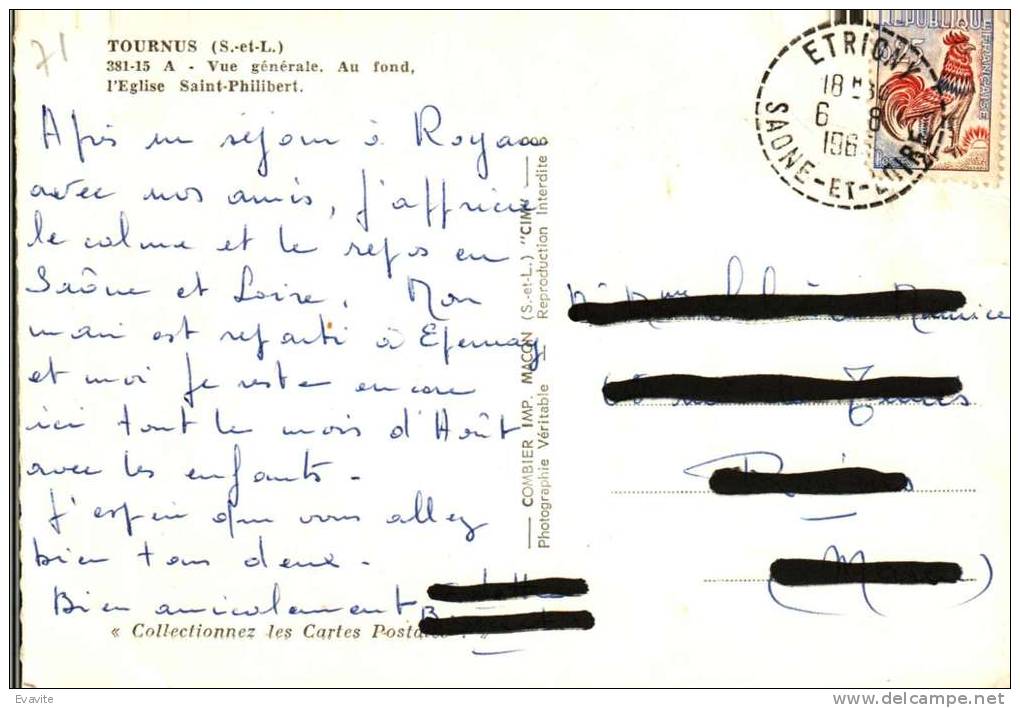 71
TOURNUS (S.-et-L.)
381-15 A - Vue générale. Au fond,
l'Eglise Saint-Philibert.
Après un séjour à Royan
avec nos amis, j'apprécie
le calme et le repos en
Saône et Loire. Mon
mari est reparti à Epernay
et moi je reste encore
ici tout le mois d'Août
avec les enfants.
J'espère que vous allez
bien tous deux.
Bien amicalement
« Collectionnez les Cartes
COMBIER IMP. MACON (S.-et-L.) "CIM"
Photographie Véritable — Reproduction Interdite
ETRIGNY
18 H
6 8
196
SAONE-ET-LOIRE
REPUBLIQUE
FRANÇAISE
Maurice
Evavite
www.delcampe.net